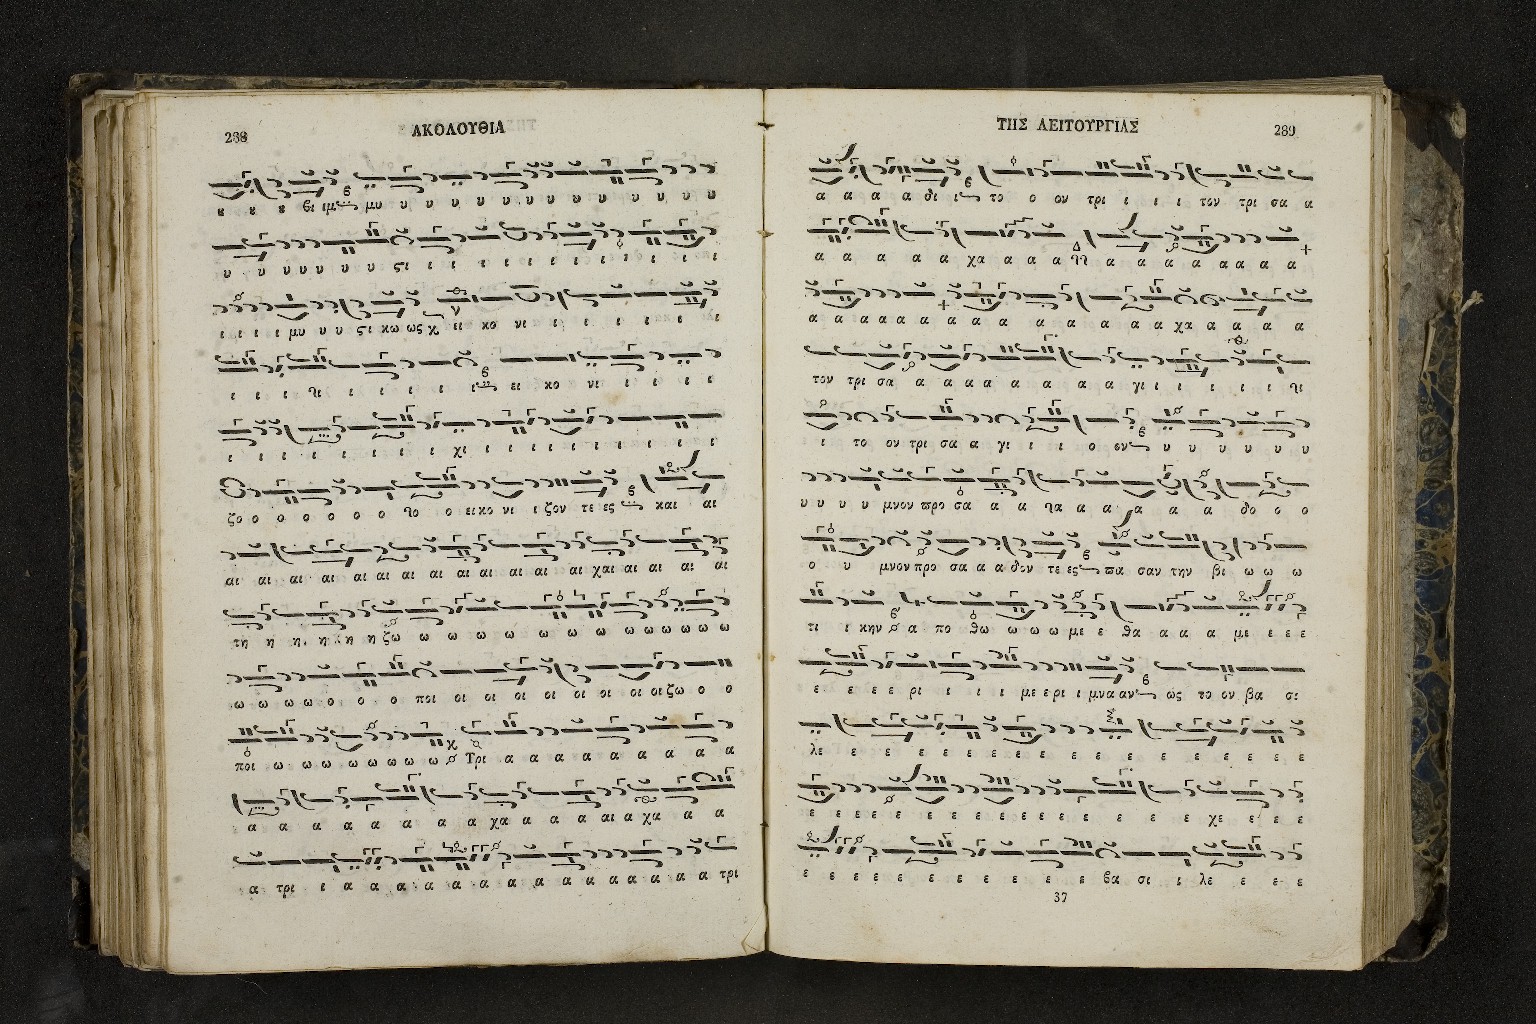 288
ΑΚΟΛΟΥΘΙΑ
υ υ υ θι ιμ μυ υ υ υ υ υ υ υ υ υ υ υ υ υ υ
υ υ υ υ υ υ υ ςι ι ι ι ι ι ι ι ι ι ι ι ι
ι ι ι ι μυ υ υ ςι κω ως ει κο νι ι ι ι ι ι ι ι
ι ι ι ι ι ι ι ι ει κο νι ι ι ι ι
ι ι ι ι ι ι ι ι χι ι ι ι ι ι ι ι ι ι ι
ζο ο ο ο ο ο ο ο ο ει κο νι ι ζον τε ες και αι
αι αι αι αι αι αι αι αι αι αι αι αι αι αι χαι αι αι αι αι
τη η η η κη η ζω ω ω ω ω ω ω ω ω ω ω ω ω
ω ω ω ω ο ο ο ποι οι οι οι οι οι οι οι οι οι ζω ο ο
ποι ω ω ω ω ω ω ω ω Τρι α α α α α α α α α
α α α α α α α α χα α α α αι α χα α α
α τρι ι α α α α α α α α α α α α α α τρι
ΤΗΣ ΛΕΙΤΟΥΡΓΙΑΣ
289
α α α α δι ι το ο ον τρι ι ι ι τον τρι σα α
α α α α α χα α α α α α α α α α α α
α α α α α α α α α α α α α α α α χα α α α α
τον τρι σα α α α α α α α α γι ι ι ι ι ι
ι το ον τρι σα α γι ι ι ο εν υ υ υ υ υ υ
υ υ υ υ μνον προ σα α α α α α α α δο ο ο
ο υ μνον προ σα α α δον τε ες πα σαν την βι ω ω ω
τι ι κην α πο θω ω ω ω με ε θα α α α με ε ε ε
ε ε ε ε ρι ι ι ι με ε ρι ι μνα αν ως το ον βα σι
λε ε ε ε ε ε ε ε ε ε ε ε ε ε ε ε ε ε
ε ε ε ε ε ε ε ε ε ε ε ε ε ε χε ε ε ε
ε ε ε ε ε ε ε ε ε ε ε ε βα σι ι λε ε ε ε
37